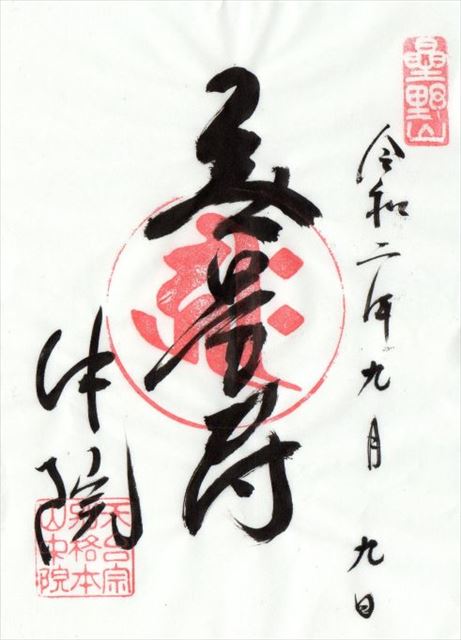 星野山
令和二年九月九日
無量寿
中院
天台宗
別格本
山中院